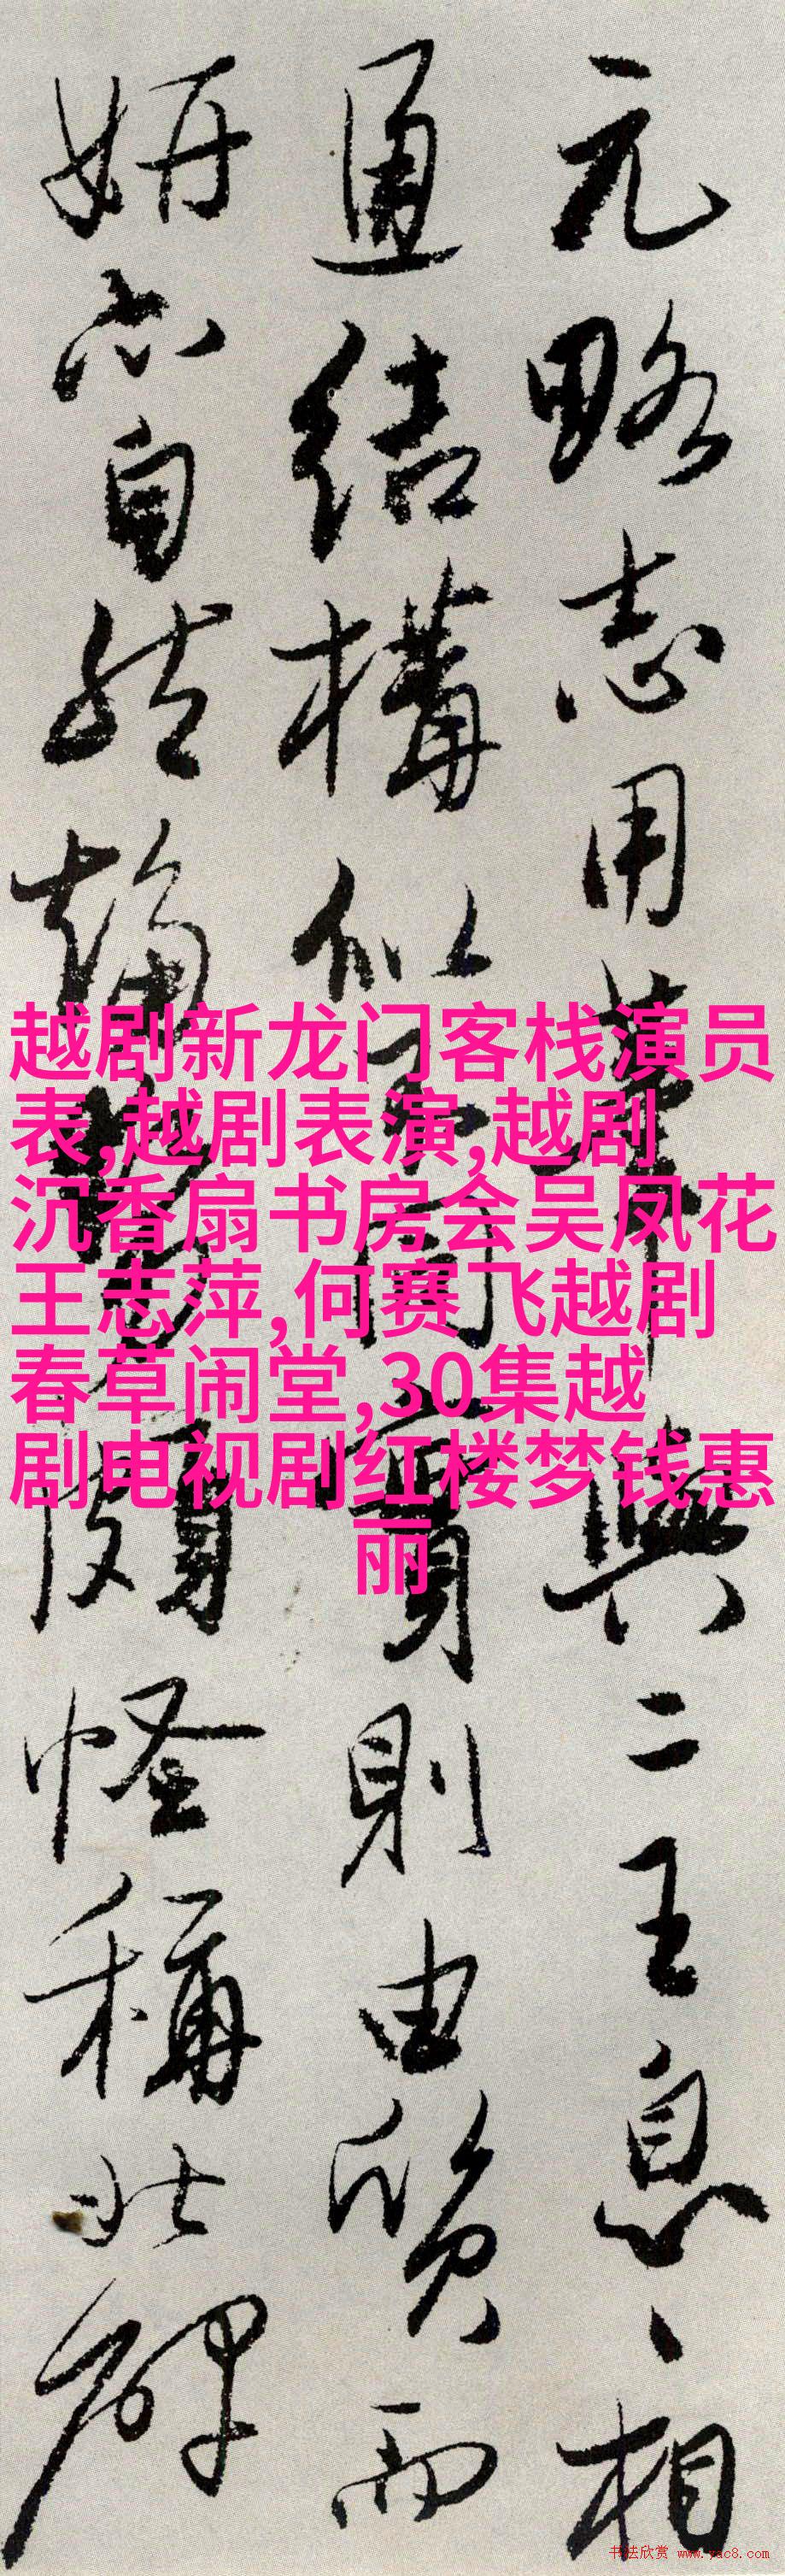 元略志用筆與二王息、相
通結構似
實則由質而
妍亦自然
頗怪稱北碑
越剧新龙门客栈演员
表,越剧表演,越剧
沉香扇书房会吴凤花
王志萍,何赛飞越剧
春草闹堂,30集越
剧电视剧红楼梦钱惠
丽
书法欣赏 www.yac8.com